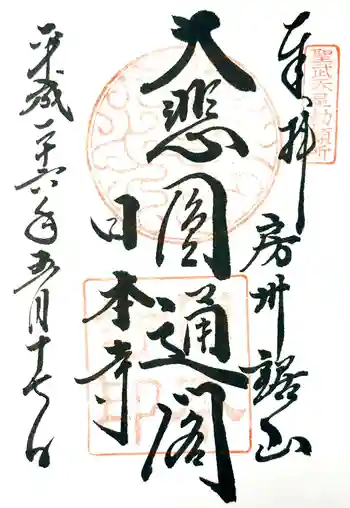 奉拝
房州鋸山
聖武天皇勅願所
大悲圓通閣
日本寺
平成二十六年五月十七日